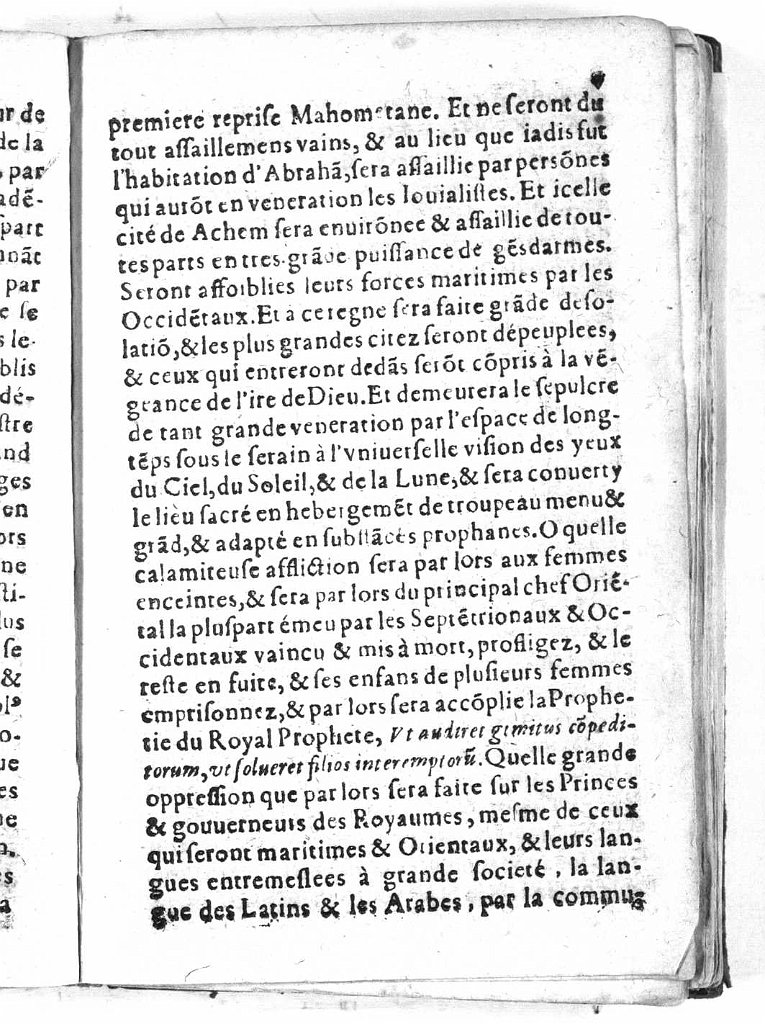 ur de
de la
, par
adẽ-
part
par
e se
s le-
blis
dé-
stre
nd
ges
en
ors
ne
sti-
lus
se
&
o-
ue
es
ne
n.
s
a
premiere reprise Mahometane. Et ne seront du
tout assaillemens vains, & au lieu que iadis fut
l'habitation d'Abrahã, sera assaillie par persõnes
qui aurõt en veneration les Iouialistes. Et icelle
cité de Achem sera enuirõnee & assaillie de tou-
tes parts en tres-grãde puissance de gẽsdarmes.
Seront affoiblies leurs forces maritimes par les
Occidẽtaux. Et à ce regne sera faite grãde deso-
latiõ, & les plus grandes citez seront dépeuplees,
& ceux qui entreront dedãs serõt cõpris à la vẽ-
geance de l'ire de Dieu. Et demeurera le sepulcre
de tant grande veneration par l'espace de long-
tẽps sous le serain à l'vniuerselle vision des yeux
du Ciel, du Soleil, & de la Lune, & sera conuerty
le lieu sacré en hebergemẽt de troupeau menu &
grãd, & adapté en substãces prophanes. O quelle
calamiteuse affliction sera par lors aux femmes
enceintes, & sera par lors du principal chef Oriẽ-
tal la pluspart émeu par les Septẽtrionaux & Oc-
cidentaux vaincu & mis à mort, profligez, & le
reste en fuite, & ses enfans de plusieurs femmes
emprisonnez, & par lors sera accõplie la Prophe-
tie du Royal Prophete, Vt audiret gemitus cõpedi-
torum, vt solueret filios interemptorũ. Quelle grande
oppression que par lors sera faite sur les Princes
& gouuerneurs des Royaumes, mesme de ceux
qui seront maritimes & Orientaux, & leurs lan-
gues entremeslees à grande societé, la lan-
gue des Latins & les Arabes, par la commu-